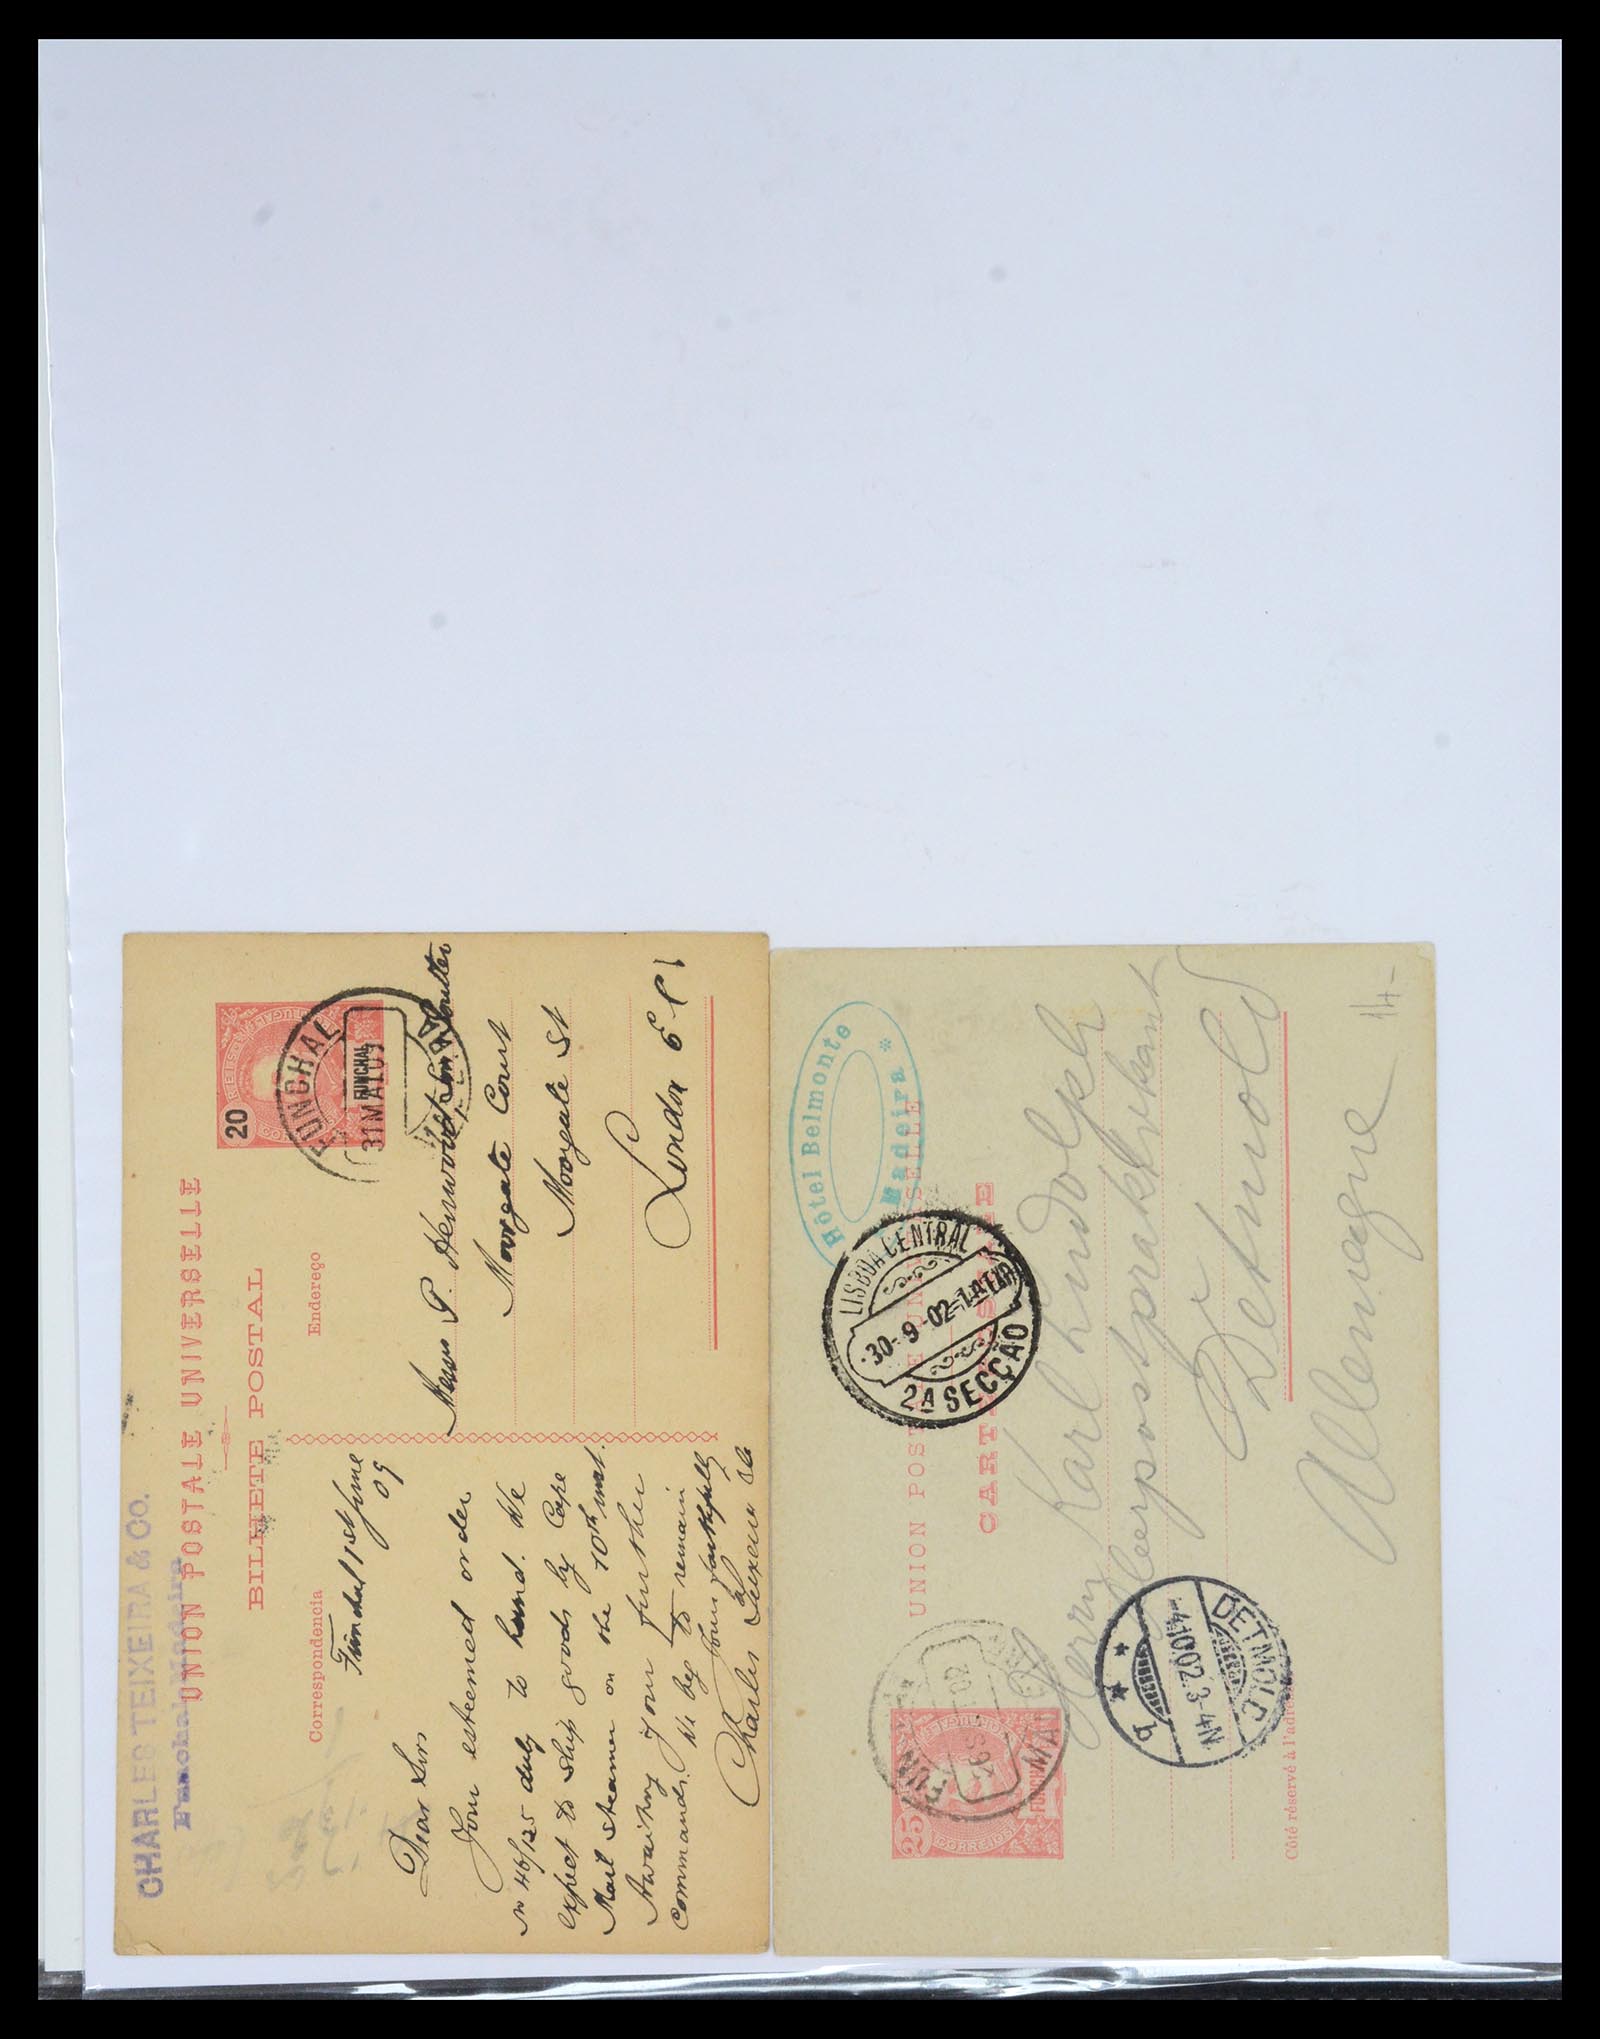 CHARLES TEIXEIRA & CO.
Funchal Madeira
UNION POSTALE UNIVERSELLE
BILHETE POSTAL
20
REIS
FUNCHAL
FUNCHAL
31 MAI 09
Correspondencia
Endereço
Funchal 1st June
09
Dear Sirs
Your esteemed order
No 46/125 duly to hand. We
expect to ship goods by Cape
Mail steamer on the 10th inst.
Awaiting your further
commands. We beg to remain
Yours faithfully
Charles Teixeira & Co
Messrs P.
Moorgate Court
Moorgate St
London E C
Hôtel Belmonte
* Madeira *
LISBOA CENTRAL
30-9-02-1A
2A SECÇÃO
UNION POSTALE UNIVERSELLE
CARTE POSTALE
25
CORREIOS
FUNCHAL
FUN
02
MAD
Herrn Karl Lindolph
Oberpostpraktikant
Detmold
Allemagne
DETMOLD
4.10.02.3-4N.
* * b
Côté réservé à l'adresse
14-